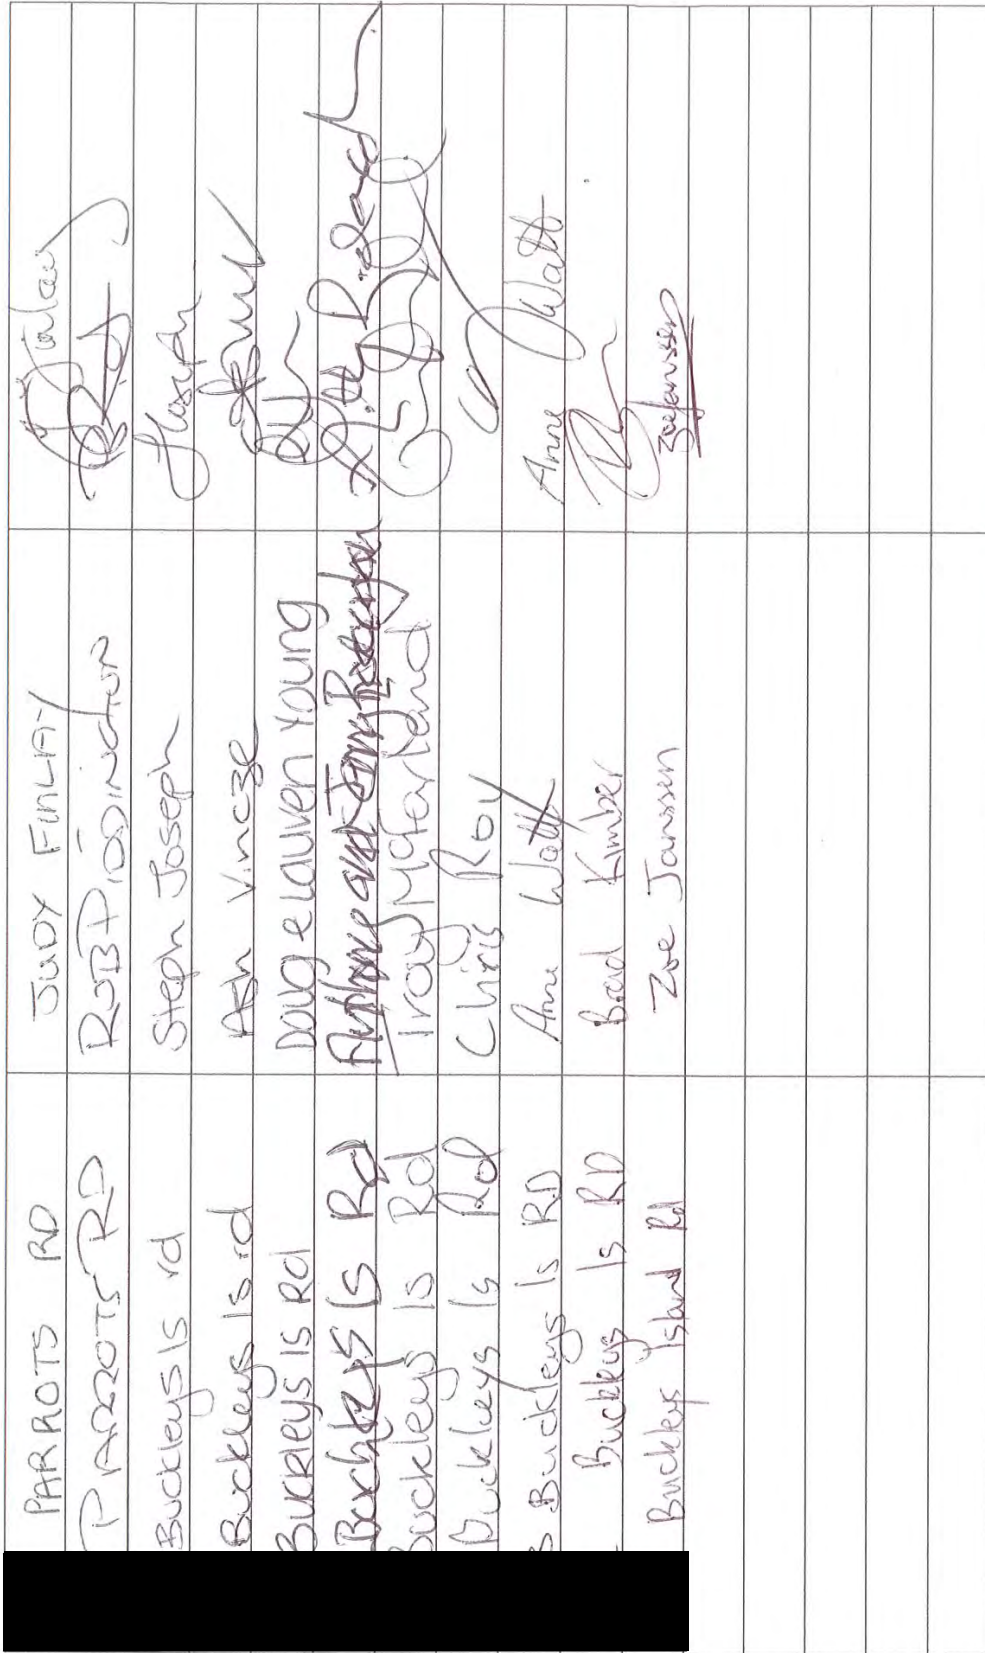 PARROTS RD JUDY FINLAY JFinlay
PARROTS RD ROB PIDDINGTON
Buckleys Is rd Steph Joseph SJoseph
Buckleys Is rd Ash Vincze
Buckleys Is Rd Doug e Lauren Young
Buckleys Is Rd Anthony and Jenny
Buckleys Is Rd Troy McFarland
Buckleys Is Rd Chris Roy
Buckleys Is RD Anne Watt Anne Watt
Buckleys Is RD Brad Kimber
Buckleys Island Rd Zoe Janssen ZoeJanssen